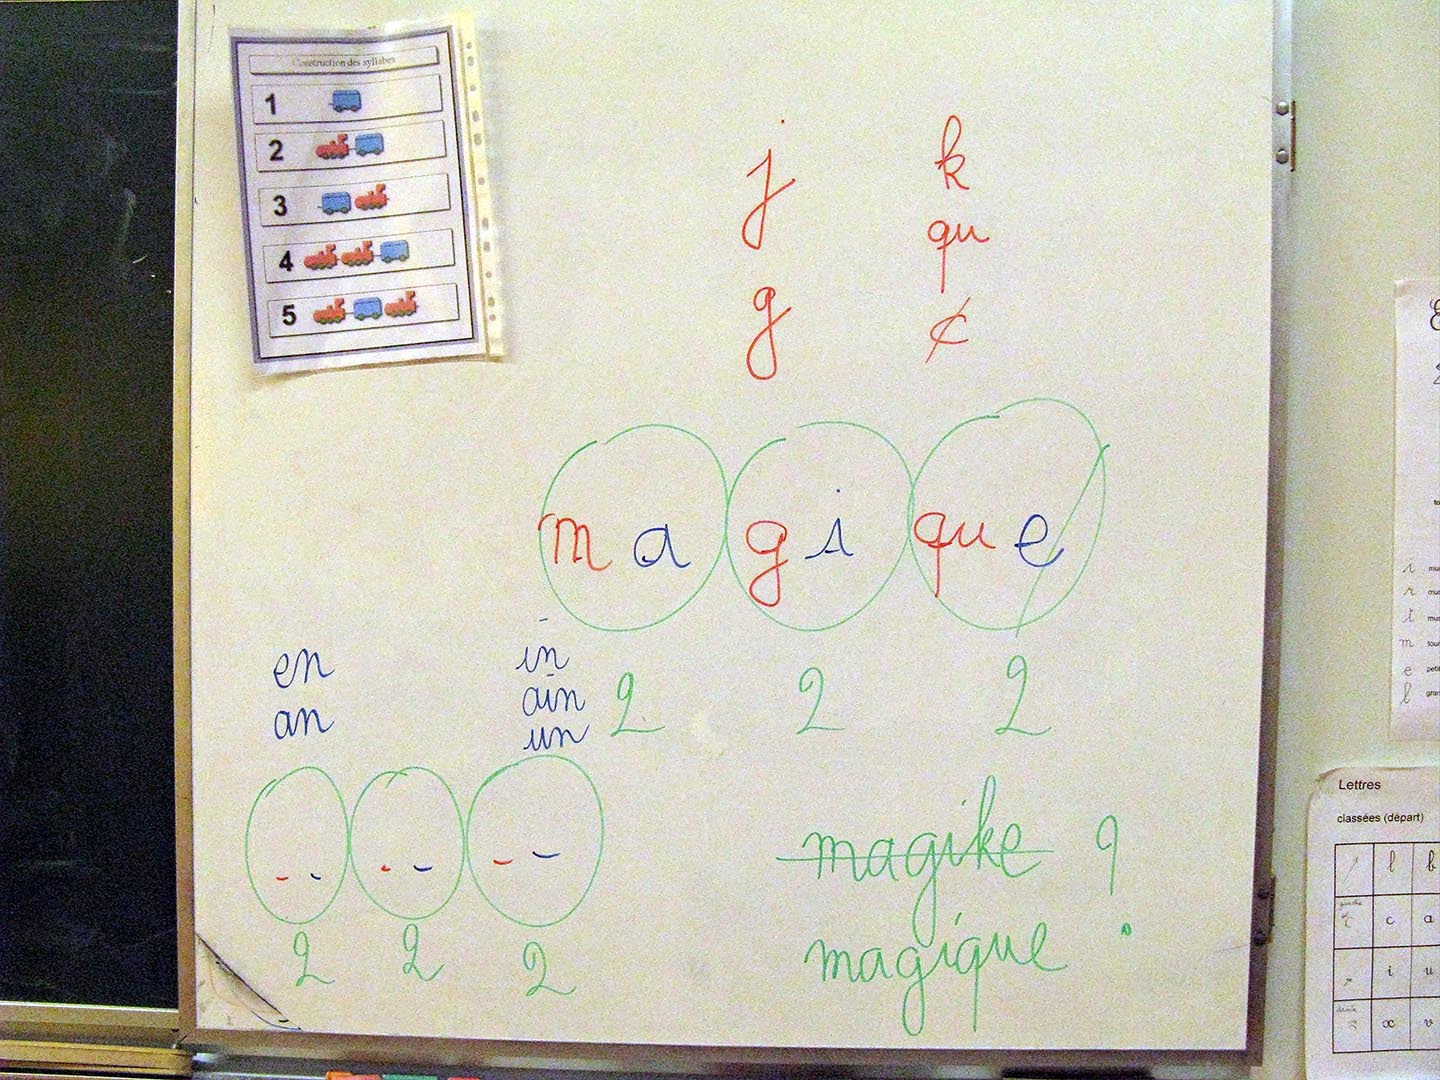 Construction des syllabes
1
2
3
4
5
j
g
k
qu
c
ma gi que
2 2 2
en
an
in
ain
un
2 2 2
magike ?
magique
Lettres
classées (départ)
l b
c a
i u
x v
i
r
t
m
e
l